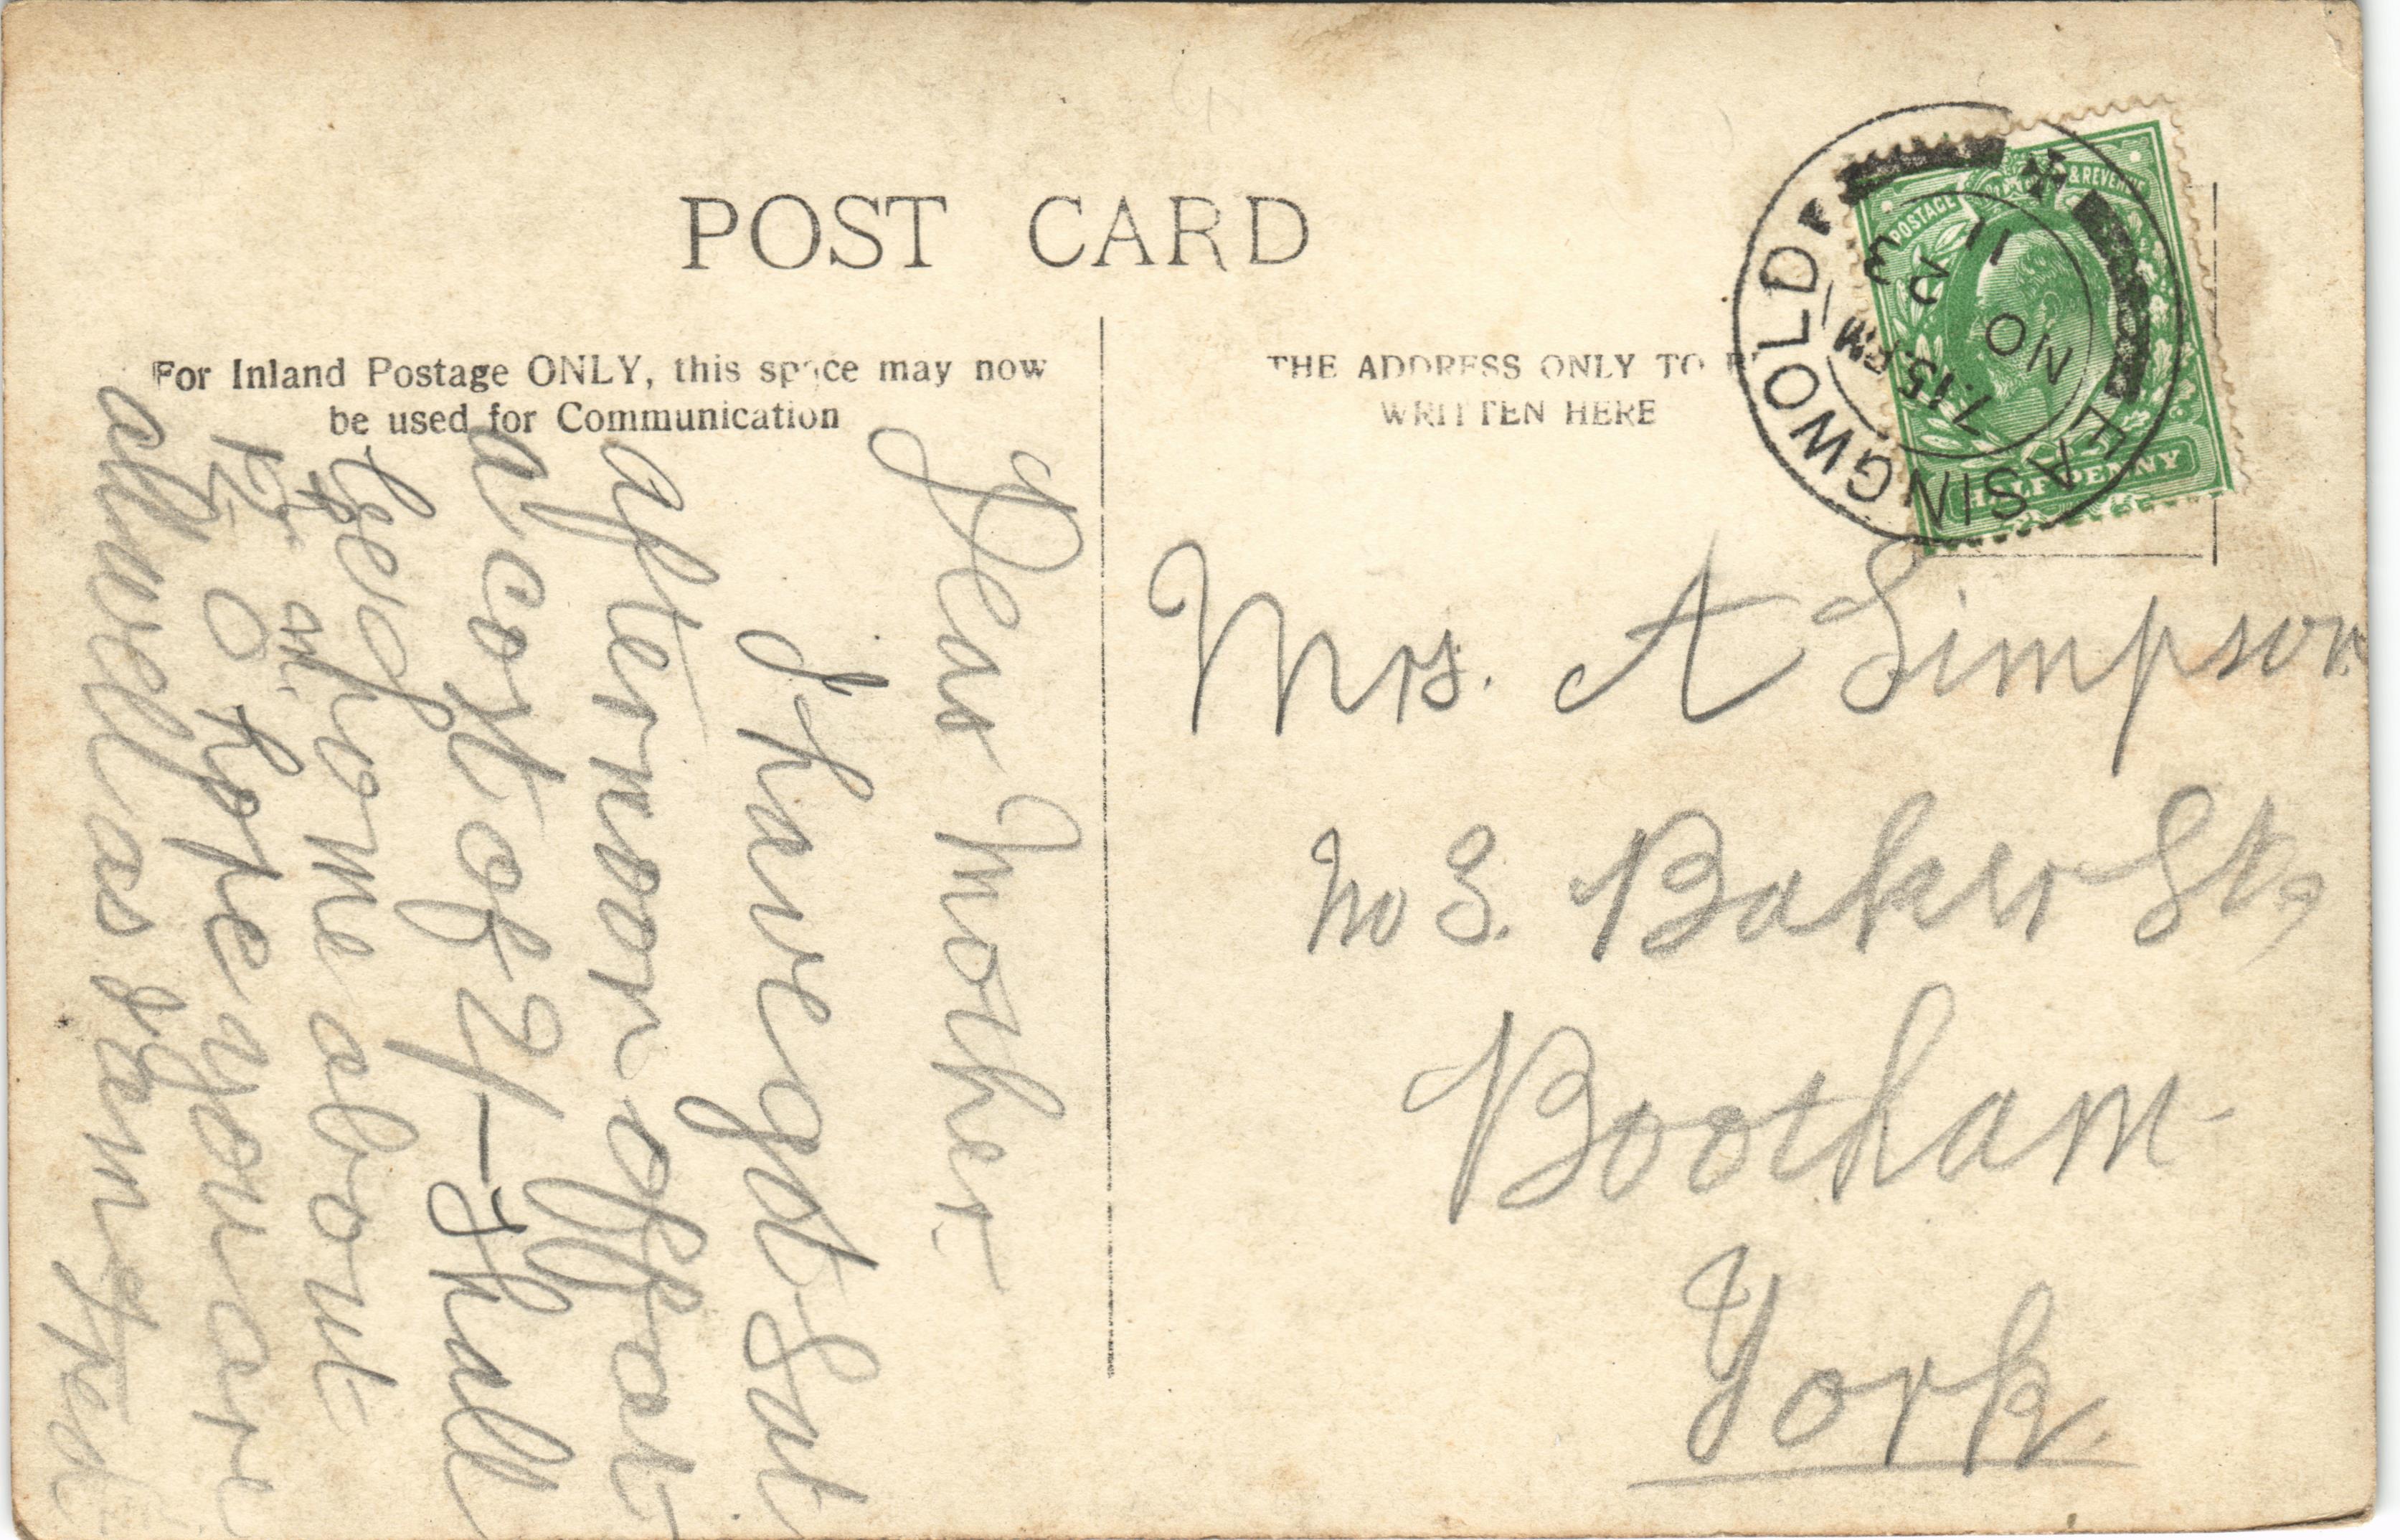 POST CARD
For Inland Postage ONLY, this space may now
be used for Communication
THE ADDRESS ONLY TO BE
WRITTEN HERE
EASINGWOLD
7.15 PM
NO 23
11
POSTAGE & REVENUE
HALFPENNY
Mrs. A Simpson
No 3. Baker St,
Bootham
York.
Dear Mother
I have got Sat
afternoon off at
a cost of 2/- I hall
be home about
12 O hope you are
all well as I am Fred